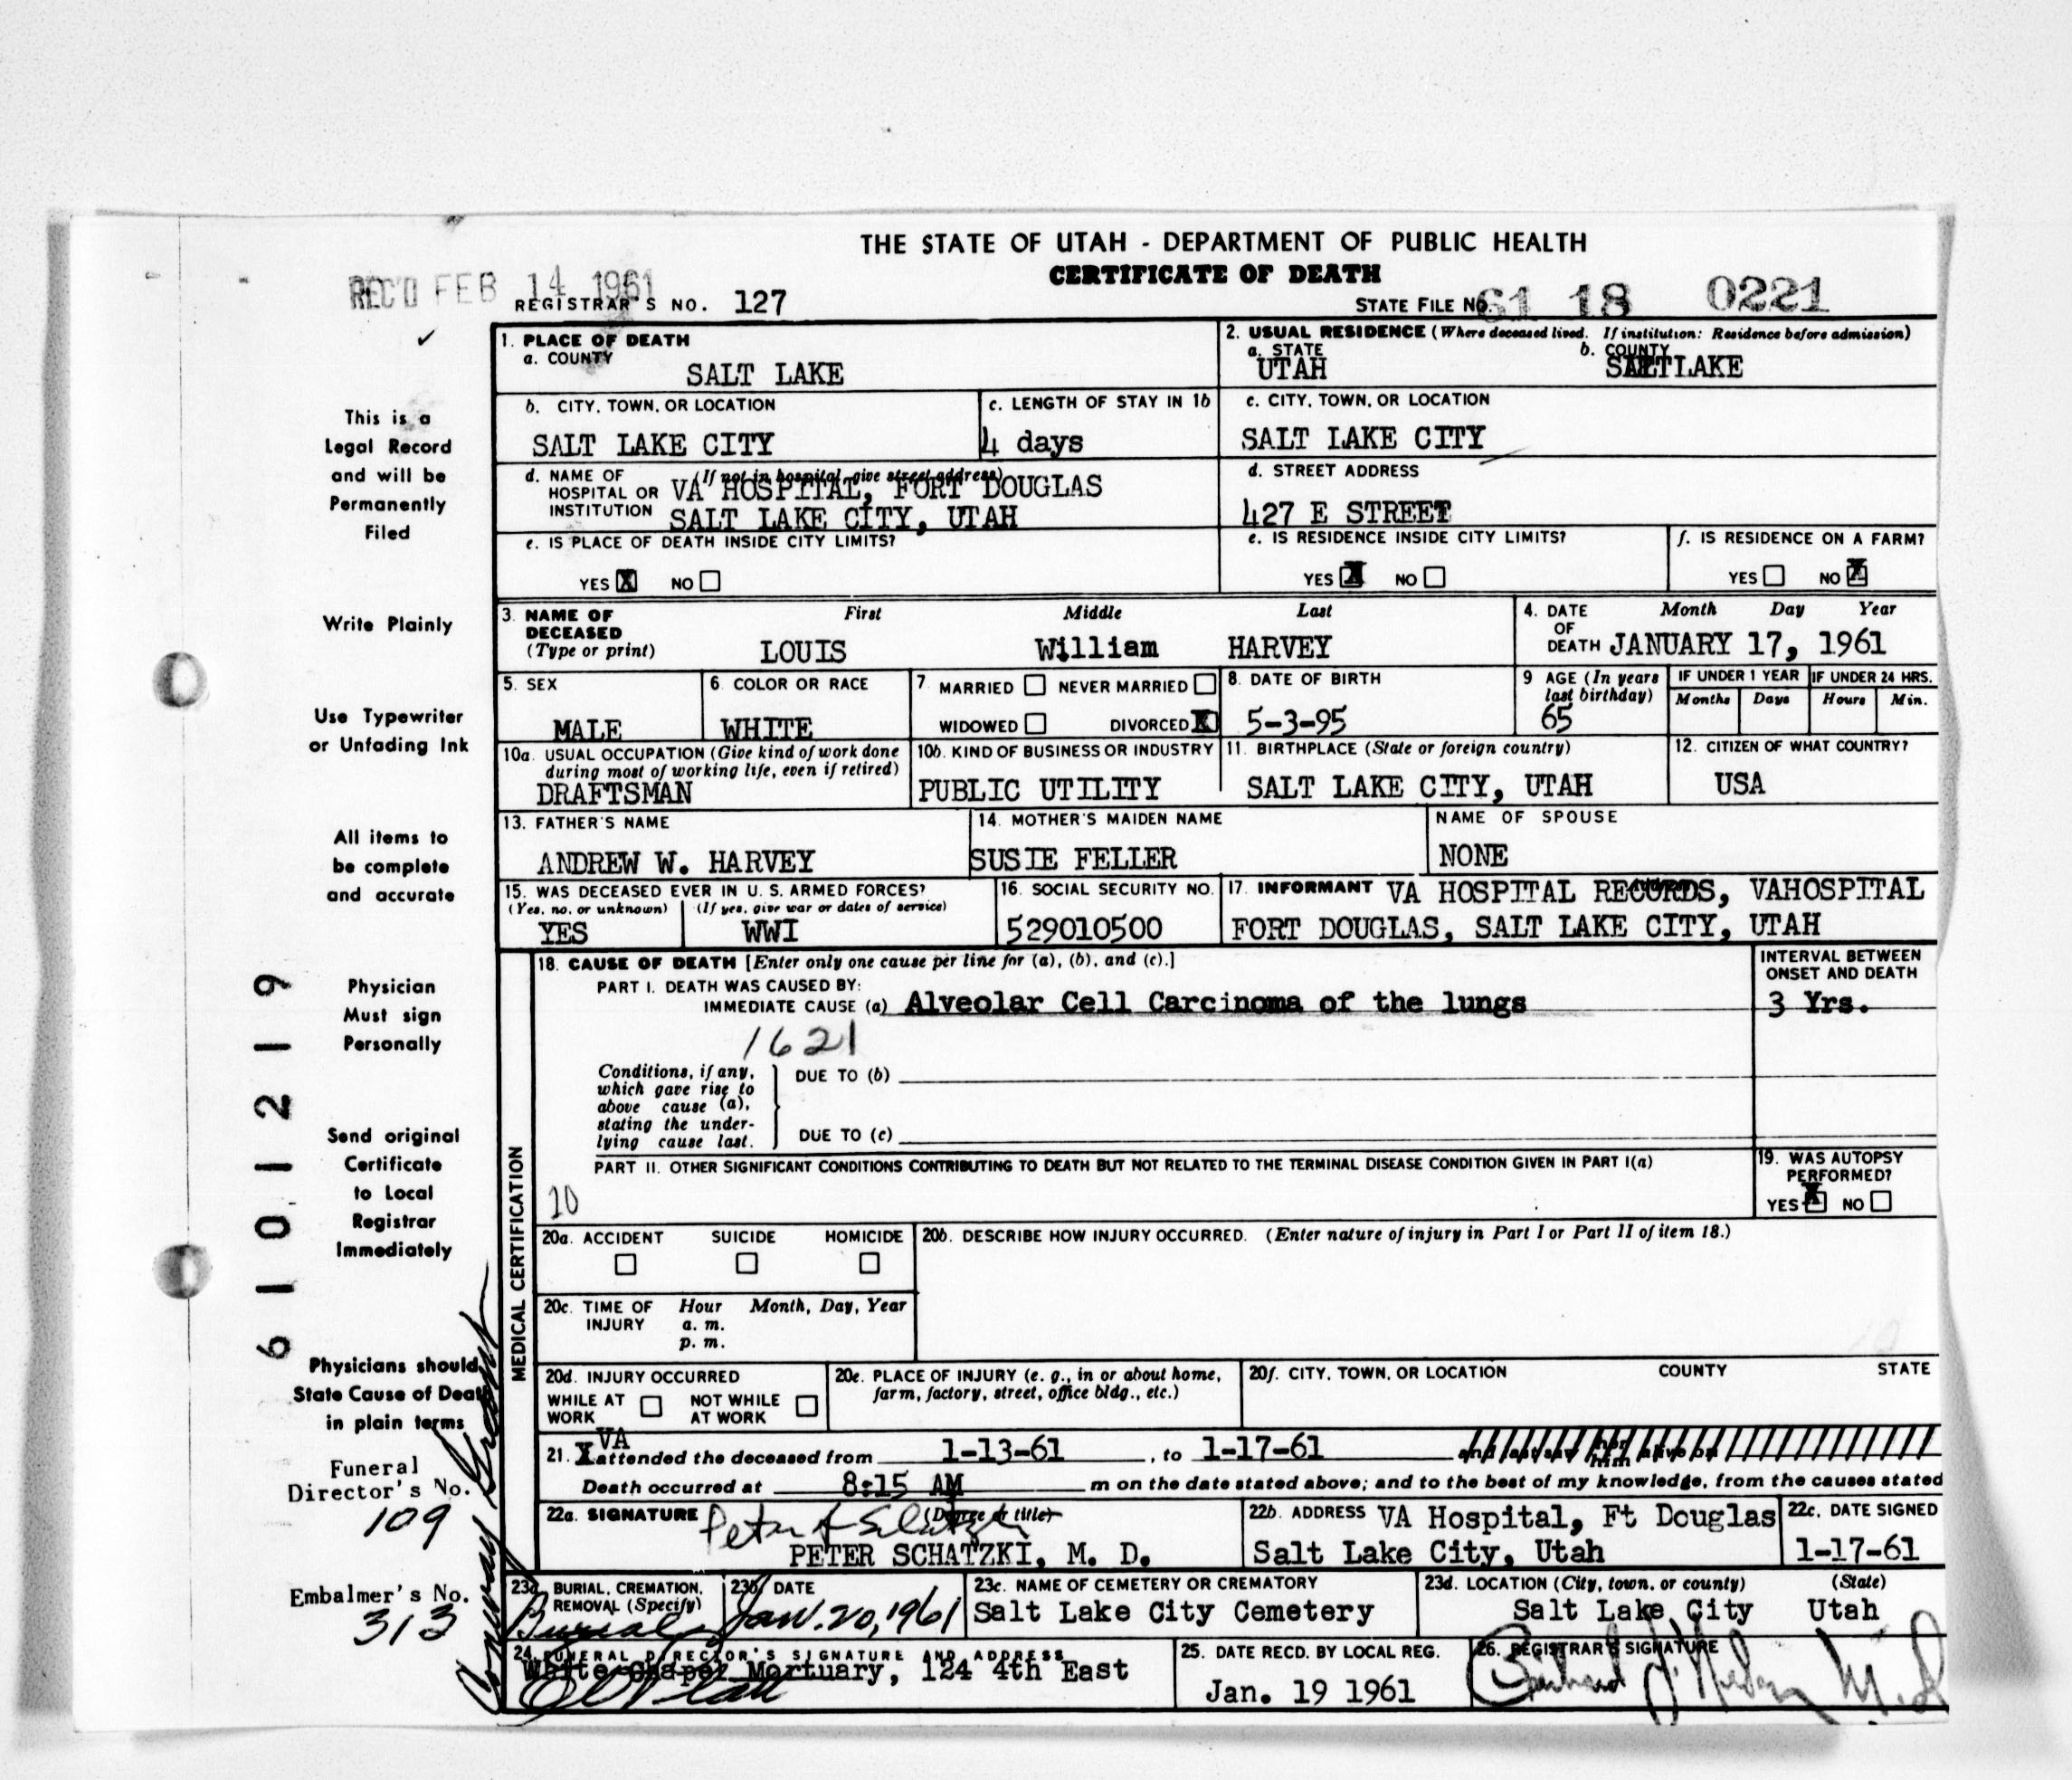 THE STATE OF UTAH - DEPARTMENT OF PUBLIC HEALTH
CERTIFICATE OF DEATH
REC'D FEB 14 1961
REGISTRAR'S NO. 127
STATE FILE NO. 61 18 0221
1. PLACE OF DEATH
a. COUNTY
SALT LAKE
2. USUAL RESIDENCE (Where deceased lived. If institution: Residence before admission)
a. STATE b. COUNTY
UTAH SALT LAKE
b. CITY, TOWN, OR LOCATION
SALT LAKE CITY
c. LENGTH OF STAY IN 1b
4 days
c. CITY, TOWN, OR LOCATION
SALT LAKE CITY
d. NAME OF (If not in hospital, give street address)
HOSPITAL OR VA HOSPITAL, FORT DOUGLAS
INSTITUTION SALT LAKE CITY, UTAH
d. STREET ADDRESS
427 E STREET
e. IS PLACE OF DEATH INSIDE CITY LIMITS?
YES X NO
e. IS RESIDENCE INSIDE CITY LIMITS?
YES X NO
f. IS RESIDENCE ON A FARM?
YES NO X
3. NAME OF First Middle Last
DECEASED
(Type or print) LOUIS William HARVEY
4. DATE Month Day Year
OF
DEATH JANUARY 17, 1961
5. SEX
MALE
6. COLOR OR RACE
WHITE
7 MARRIED NEVER MARRIED
WIDOWED DIVORCED X
8. DATE OF BIRTH
5-3-95
9 AGE (In years
last birthday)
65
IF UNDER 1 YEAR IF UNDER 24 HRS.
Months Days Hours Min.
10a. USUAL OCCUPATION (Give kind of work done
during most of working life, even if retired)
DRAFTSMAN
10b. KIND OF BUSINESS OR INDUSTRY
PUBLIC UTILITY
11. BIRTHPLACE (State or foreign country)
SALT LAKE CITY, UTAH
12. CITIZEN OF WHAT COUNTRY?
USA
13. FATHER'S NAME
ANDREW W. HARVEY
14. MOTHER'S MAIDEN NAME
SUSIE FELLER
NAME OF SPOUSE
NONE
15. WAS DECEASED EVER IN U. S. ARMED FORCES?
(Yes, no, or unknown) (If yes, give war or dates of service)
YES WWI
16. SOCIAL SECURITY NO.
529010500
17. INFORMANT VA HOSPITAL RECORDS, VAHOSPITAL
FORT DOUGLAS, SALT LAKE CITY, UTAH
MEDICAL CERTIFICATION
18. CAUSE OF DEATH [Enter only one cause per line for (a), (b), and (c).]
PART I. DEATH WAS CAUSED BY:
IMMEDIATE CAUSE (a) Alveolar Cell Carcinoma of the lungs
1621
INTERVAL BETWEEN
ONSET AND DEATH
3 Yrs.
Conditions, if any,
which gave rise to
above cause (a),
stating the under-
lying cause last.
DUE TO (b)
DUE TO (c)
PART II. OTHER SIGNIFICANT CONDITIONS CONTRIBUTING TO DEATH BUT NOT RELATED TO THE TERMINAL DISEASE CONDITION GIVEN IN PART I(a)
10
19. WAS AUTOPSY
PERFORMED?
YES X NO
20a. ACCIDENT SUICIDE HOMICIDE
20b. DESCRIBE HOW INJURY OCCURRED. (Enter nature of injury in Part I or Part II of item 18.)
20c. TIME OF Hour Month, Day, Year
INJURY a. m.
p. m.
20d. INJURY OCCURRED
WHILE AT NOT WHILE
WORK AT WORK
20e. PLACE OF INJURY (e. g., in or about home,
farm, factory, street, office bldg., etc.)
20f. CITY, TOWN, OR LOCATION COUNTY STATE
VA
21. I attended the deceased from 1-13-61, to 1-17-61 and last saw her him alive on
Death occurred at 8:15 AM m on the date stated above; and to the best of my knowledge, from the causes stated
22a. SIGNATURE (Degree or title)
PETER SCHATZKI, M. D.
22b. ADDRESS VA Hospital, Ft Douglas
Salt Lake City, Utah
22c. DATE SIGNED
1-17-61
23a. BURIAL, CREMATION,
REMOVAL (Specify)
Burial
23b. DATE
Jan. 20, 1961
23c. NAME OF CEMETERY OR CREMATORY
Salt Lake City Cemetery
23d. LOCATION (City, town, or county) (State)
Salt Lake City Utah
24. FUNERAL DIRECTOR'S SIGNATURE AND ADDRESS
White Chapel Mortuary, 124 4th East
25. DATE RECD. BY LOCAL REG.
Jan. 19 1961
26. REGISTRAR'S SIGNATURE
This is a
Legal Record
and will be
Permanently
Filed
Write Plainly
Use Typewriter
or Unfading Ink
All items to
be complete
and accurate
Physician
Must sign
Personally
Send original
Certificate
to Local
Registrar
Immediately
Physicians should
State Cause of Death
in plain terms
Funeral
Director's No.
109
Embalmer's No.
313
61 01219